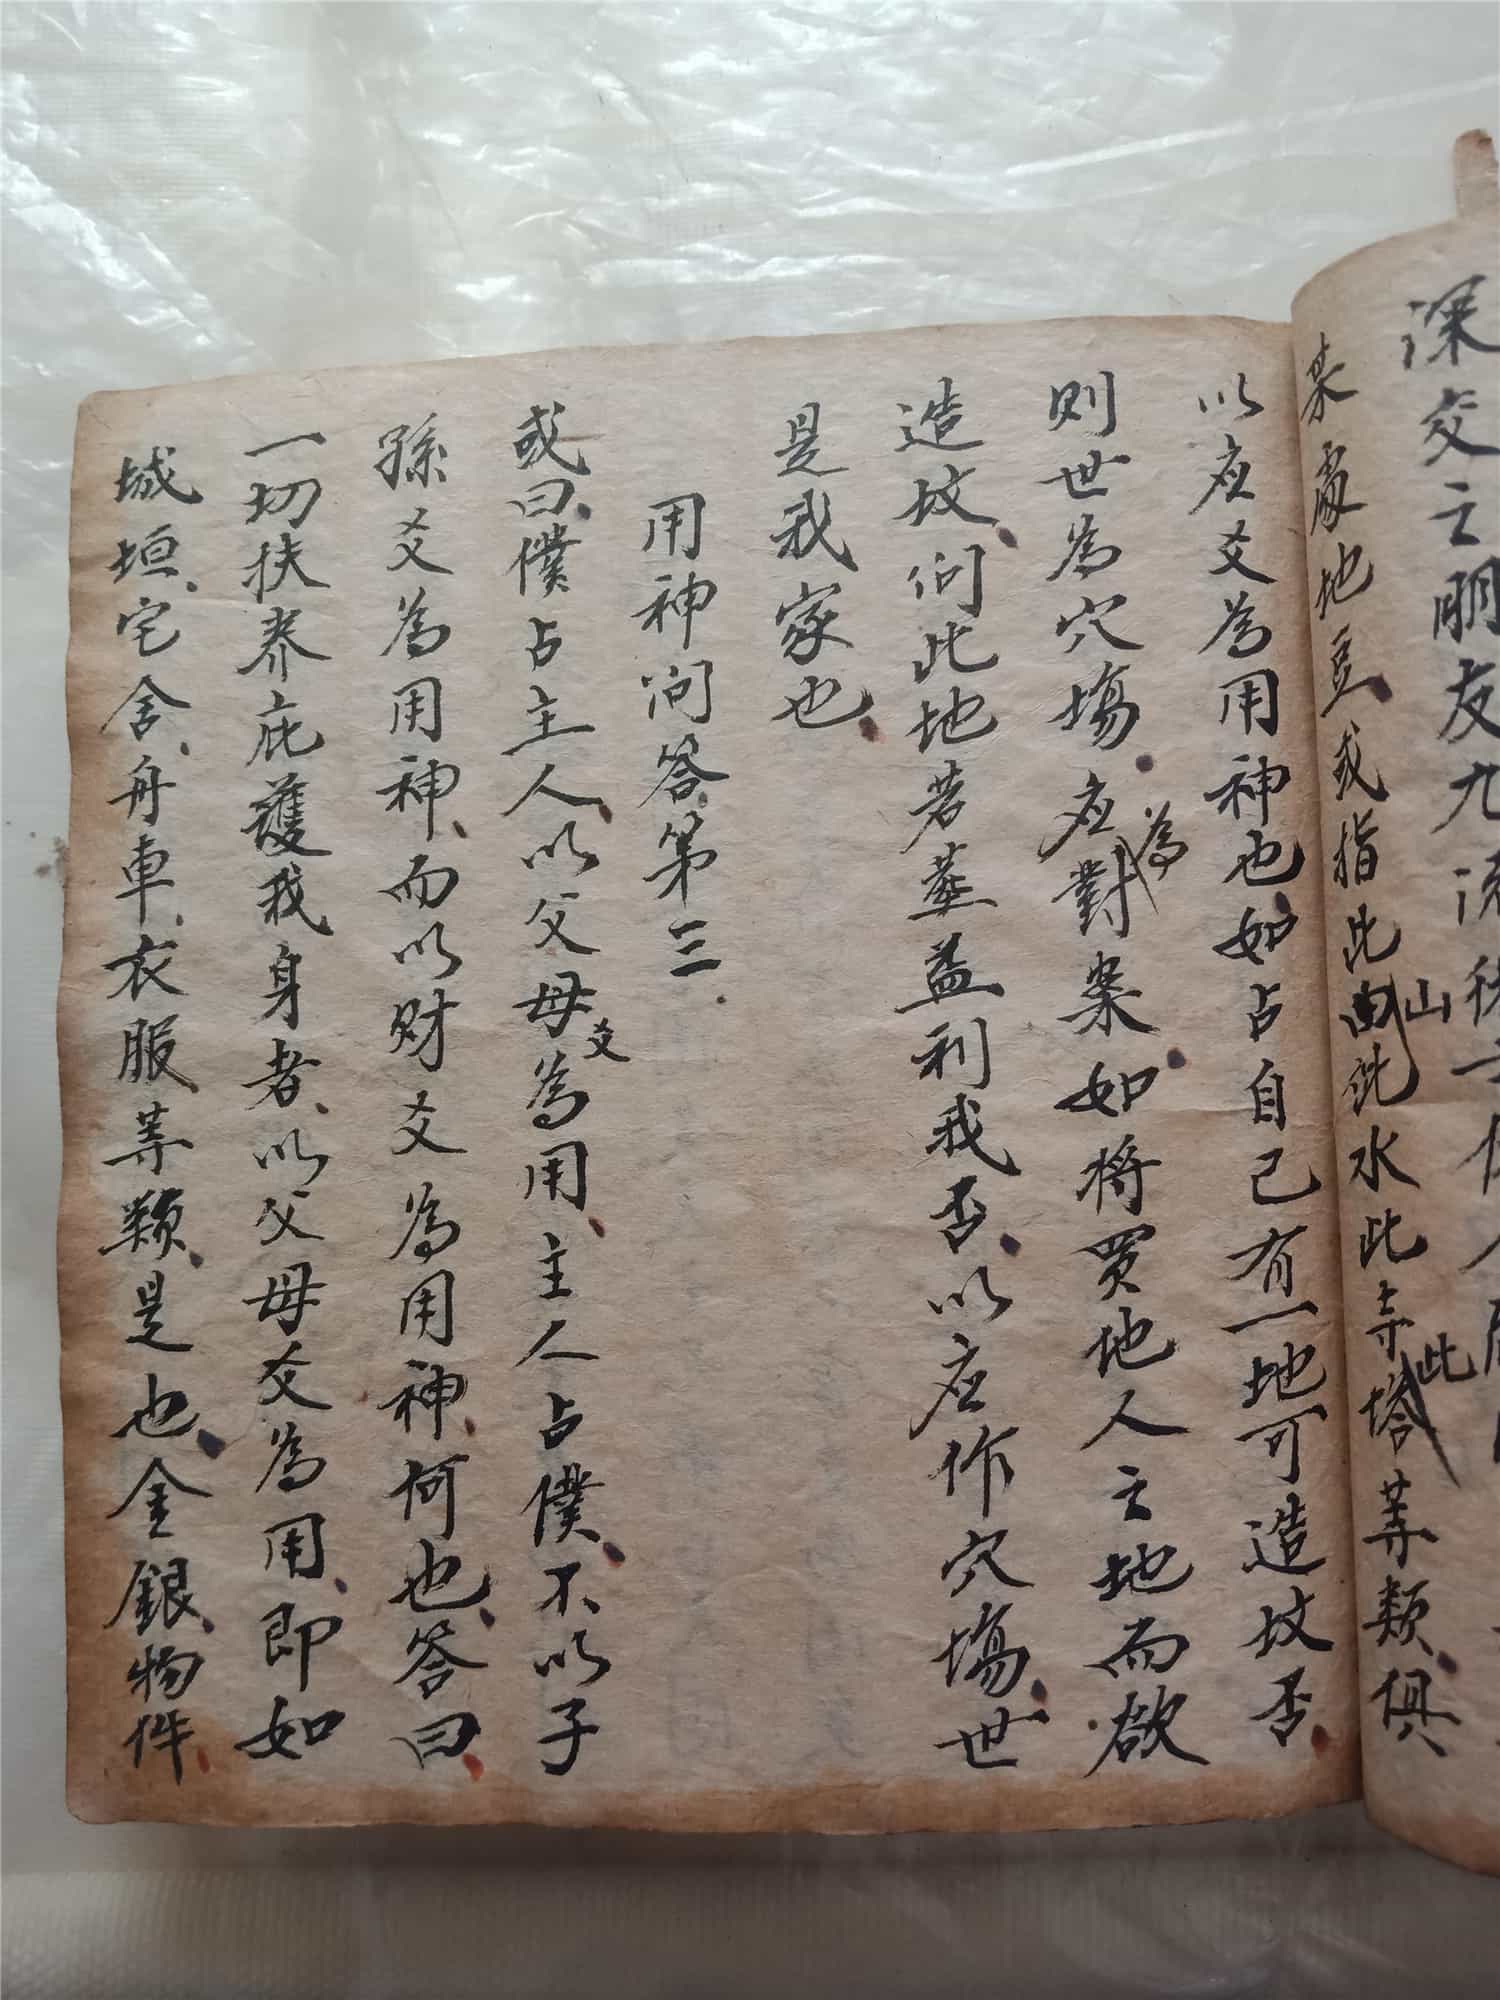 深交之朋友九流
某處地豆或指此山此水此寺此塔等類俱
以应爻為用神也如占自己有一地可造坟否
則世為穴塲应為對案如将買他人之地而欲
造坟问此地若塟益利我否以应作穴塲世
是我家也
用神问答第三
或曰僕占主人以父母爻為用主人占僕不以子
孫爻為用神而以财爻為用神何也答曰
一切扶养庇護我身者以父母爻為用即如
城垣宅舍舟車衣服等類是也金銀物件